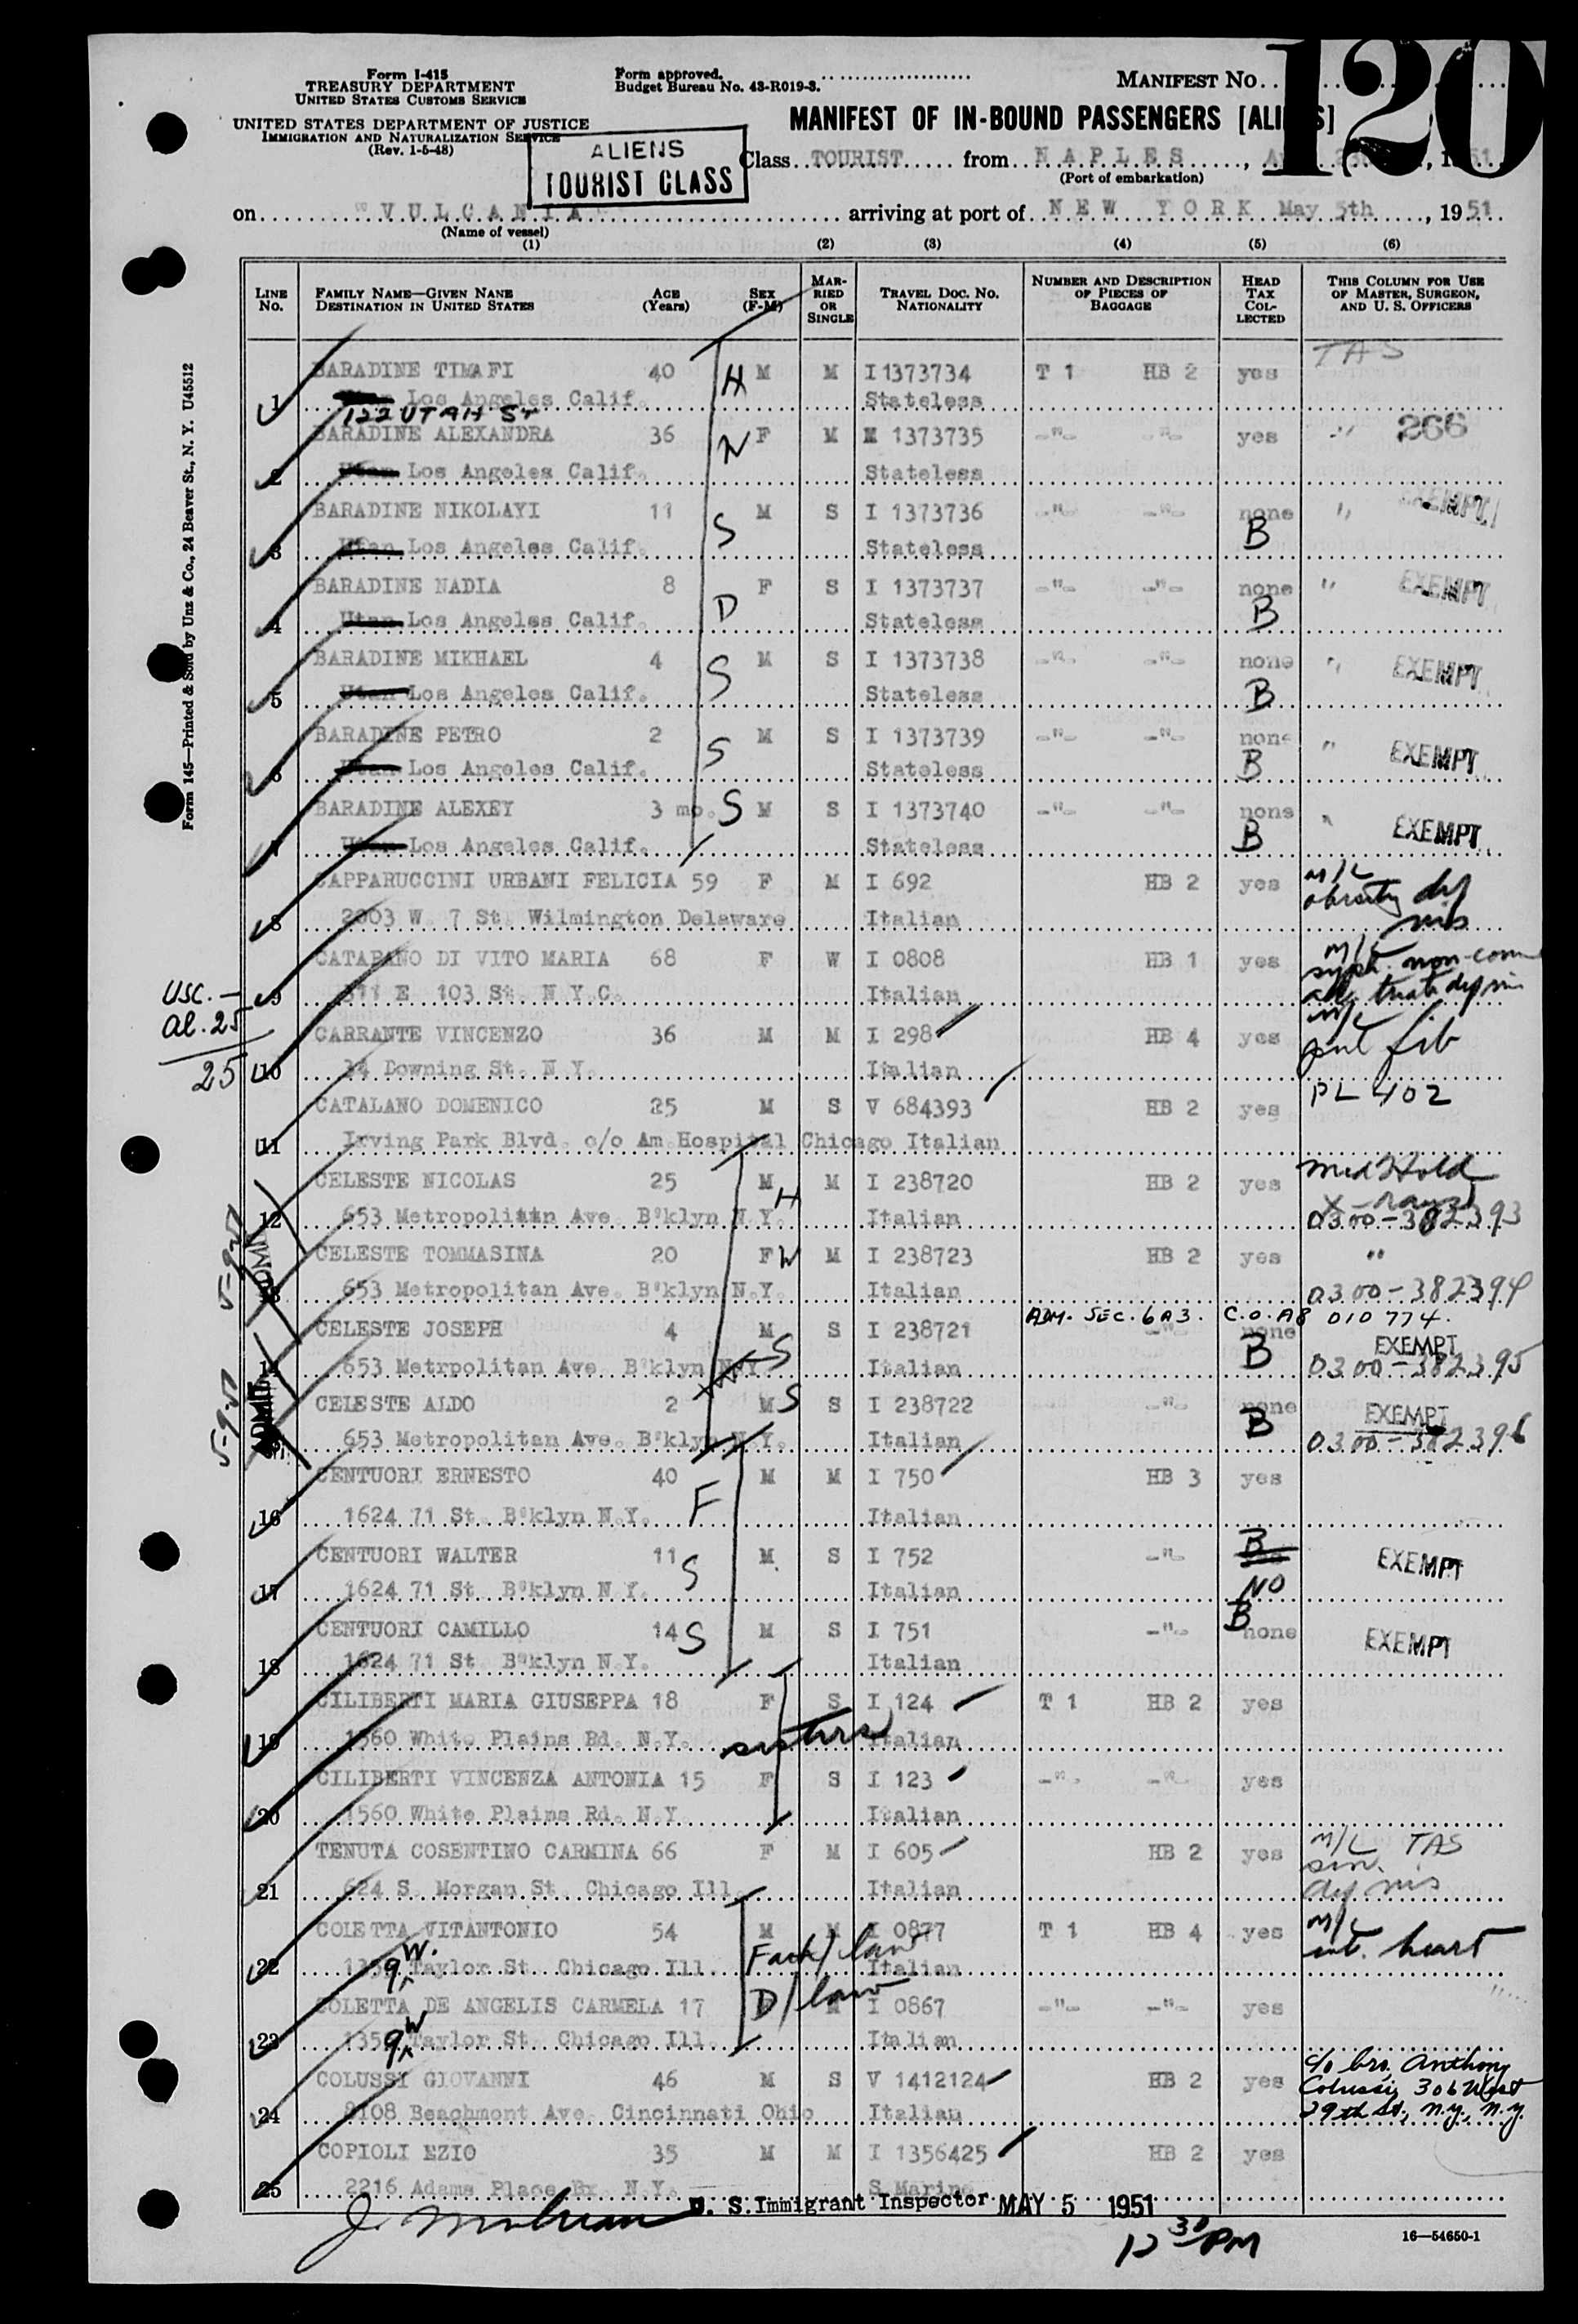 Form I-415
TREASURY DEPARTMENT
UNITED STATES CUSTOMS SERVICE
UNITED STATES DEPARTMENT OF JUSTICE
IMMIGRATION AND NATURALIZATION SERVICE
(Rev. 1-5-48)
Form approved.
Budget Bureau No. 43-R019-3.
MANIFEST NO. 120
MANIFEST OF IN-BOUND PASSENGERS [ALIENS]
ALIENS
TOURIST CLASS
Class TOURIST from NAPLES, 1951
(Port of embarkation)
on "VULCANIA" arriving at port of NEW YORK May 5th, 1951
(Name of vessel)
(1) (2) (3) (4) (5) (6)
LINE NO. FAMILY NAME—GIVEN NANE DESTINATION IN UNITED STATES AGE (Years) SEX (F-M) MARRIED OR SINGLE TRAVEL DOC. NO. NATIONALITY NUMBER AND DESCRIPTION OF PIECES OF BAGGAGE HEAD TAX COLLECTED THIS COLUMN FOR USE OF MASTER, SURGEON, AND U. S. OFFICERS
Form 145—Printed & Sold by Unz & Co., 24 Beaver St., N. Y. U45512
BARADINE TIMAFI 40 H M M I 1373734 T 1 HB 2 yes TAS
1 Los Angeles Calif. Stateless
122 UTAH ST
BARADINE ALEXANDRA 36 W F M I 1373735 -"- -"- yes " 266
2 Utan Los Angeles Calif. Stateless
BARADINE NIKOLAYI 11 S M S I 1373736 -"- -"- none " EXEMPT
3 Utan Los Angeles Calif. Stateless B
BARADINE NADIA 8 D F S I 1373737 -"- -"- none " EXEMPT
4 Utan Los Angeles Calif. Stateless B
BARADINE MIKHAEL 4 S M S I 1373738 -"- -"- none " EXEMPT
5 Utan Los Angeles Calif. Stateless B
BARADINE PETRO 2 S M S I 1373739 -"- -"- none " EXEMPT
6 Utan Los Angeles Calif. Stateless B
BARADINE ALEXEY 3 mo. S M S I 1373740 -"- -"- none " EXEMPT
7 Utan Los Angeles Calif. Stateless B
CAPPARUCCINI URBANI FELICIA 59 F M I 692 HB 2 yes M/C obesity def
8 2003 W. 7 St. Wilmington Delaware Italian
CATAPANO DI VITO MARIA 68 F W I 0808 HB 1 yes M/C
9 311 E 103 St. N.Y.C. Italian
USC. —
al. 25
25
CARRANTE VINCENZO 36 M M I 298 HB 4 yes pul fib
10 34 Downing St. N.Y. Italian
CATALANO DOMENICO 25 M S V 684393 HB 2 yes PL 402
11 Irving Park Blvd. c/o Am.Hospital Chicago Italian
CELESTE NICOLAS 25 M H M I 238720 HB 2 yes Med Hold X-rays
12 653 Metropolitan Ave. B'klyn N.Y. Italian 0300-382393
CELESTE TOMMASINA 20 F W M I 238723 HB 2 yes "
13 653 Metropolitan Ave. B'klyn N.Y. Italian 0300-382394
ADM. SEC. 6A3. C.O. A8 010 774.
CELESTE JOSEPH 4 M S S I 238721 -"- none EXEMPT
14 653 Metrpolitan Ave. B'klyn N.Y. Italian B 0300-382395
CELESTE ALDO 2 M S S I 238722 -"- none EXEMPT
15 653 Metropolitan Ave. B'klyn N.Y. Italian B 0300-382396
ADMIT 5-9-51
ADMIT 5-9-51
CENTUORI ERNESTO 40 F M M I 750 HB 3 yes
16 1624 71 St. B'klyn N.Y. Italian
CENTUORI WALTER 11 S M S I 752 -"- B EXEMPT
17 1624 71 St B'klyn N.Y. Italian NO
CENTUORI CAMILLO 14 S M S I 751 -"- B none EXEMPT
18 1624 71 St B'klyn N.Y. Italian
CILIBERTI MARIA GIUSEPPA 18 F S I 124 T 1 HB 2 yes
19 1560 White Plains Rd. N.Y. sisters Italian
CILIBERTI VINCENZA ANTONIA 15 F S I 123 -"- -"- yes
20 1560 White Plains Rd. N.Y. Italian
TENUTA COSENTINO CARMINA 66 F M I 605 HB 2 yes M/C TAS sen.
21 624 S. Morgan St. Chicago Ill. Italian
COLETTA VITANTONIO 54 M M I 0877 T 1 HB 4 yes M/C
22 1359 W. Taylor St. Chicago Ill. Fath/law Italian heart
COLETTA DE ANGELIS CARMELA 17 D/law M I 0867 -"- -"- yes
23 1359 W Taylor St. Chicago Ill. Italian
COLUSSI GIOVANNI 46 M S V 1412124 HB 2 yes c/o bro. Anthony Colussi, 306 West
24 2108 Beachmont Ave. Cincinnati Ohio Italian 29th St., N.Y., N.Y.
COPIOLI EZIO 35 M M I 1356425 HB 2 yes
25 2216 Adams Place Bx. N.Y. S.Marino
U. S. Immigrant Inspector MAY 5 1951
12 30 PM
16—54650-1